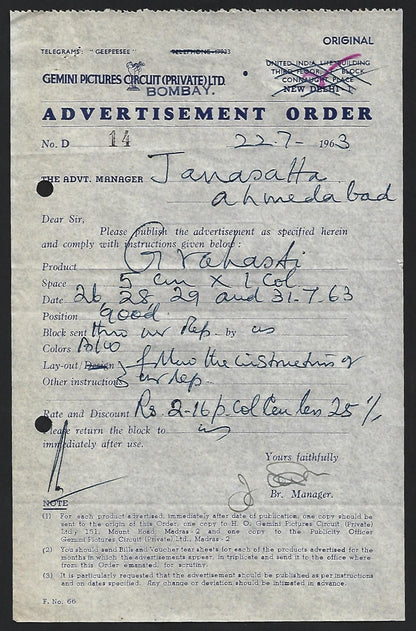 ORIGINAL
TELEGRAMS: "GEEPEESEE"
TELEPHONE
GEMINI PICTURES CIRCUIT (PRIVATE) LTD.
BOMBAY.
UNITED INDIA LIFE BUILDING
THIRD FLOOR BLOCK
CONNAUGHT PLACE
NEW DELHI
ADVERTISEMENT ORDER
No. D 14 22-7- 1963
THE ADVT. MANAGER Janasatta
Ahmedabad
Dear Sir,
Please publish the advertisement as specified herein
and comply with instructions given below:
Product Grahasti
Space 5 cm x 1 Col
Date 26, 28, 29 and 31-7-63
Position good
Block sent thro our Rep. by us
Colors B/W
Lay-out/Design } follow the instructions of
Other instructions } our rep.
Rate and Discount Rs. 2-16 p. Col Cen less 25%
Please return the block to us
immediately after use.
Yours faithfully
Br. Manager.
NOTE
(1) For each product advertised, immediately after date of publication, one copy should be
sent to the origin of this Order; one copy to H. O. Gemini Pictures Circuit (Private)
Ltd., 151, Mount Road, Madras-2 and one copy to the Publicity Officer
Gemini Pictures Circuit (Private) Ltd., Madras-2
(2) You should send Bills and Voucher tear sheets for each of the products advertised for the
months in which the advertisements appear, in triplicate and send it to the office where
from this Order emanated, for scrutiny.
(3) It is particularly requested that the advertisement should be published as per instructions
and on dates specified. Any change or deviation should be intimated in advance.
F. No. 66